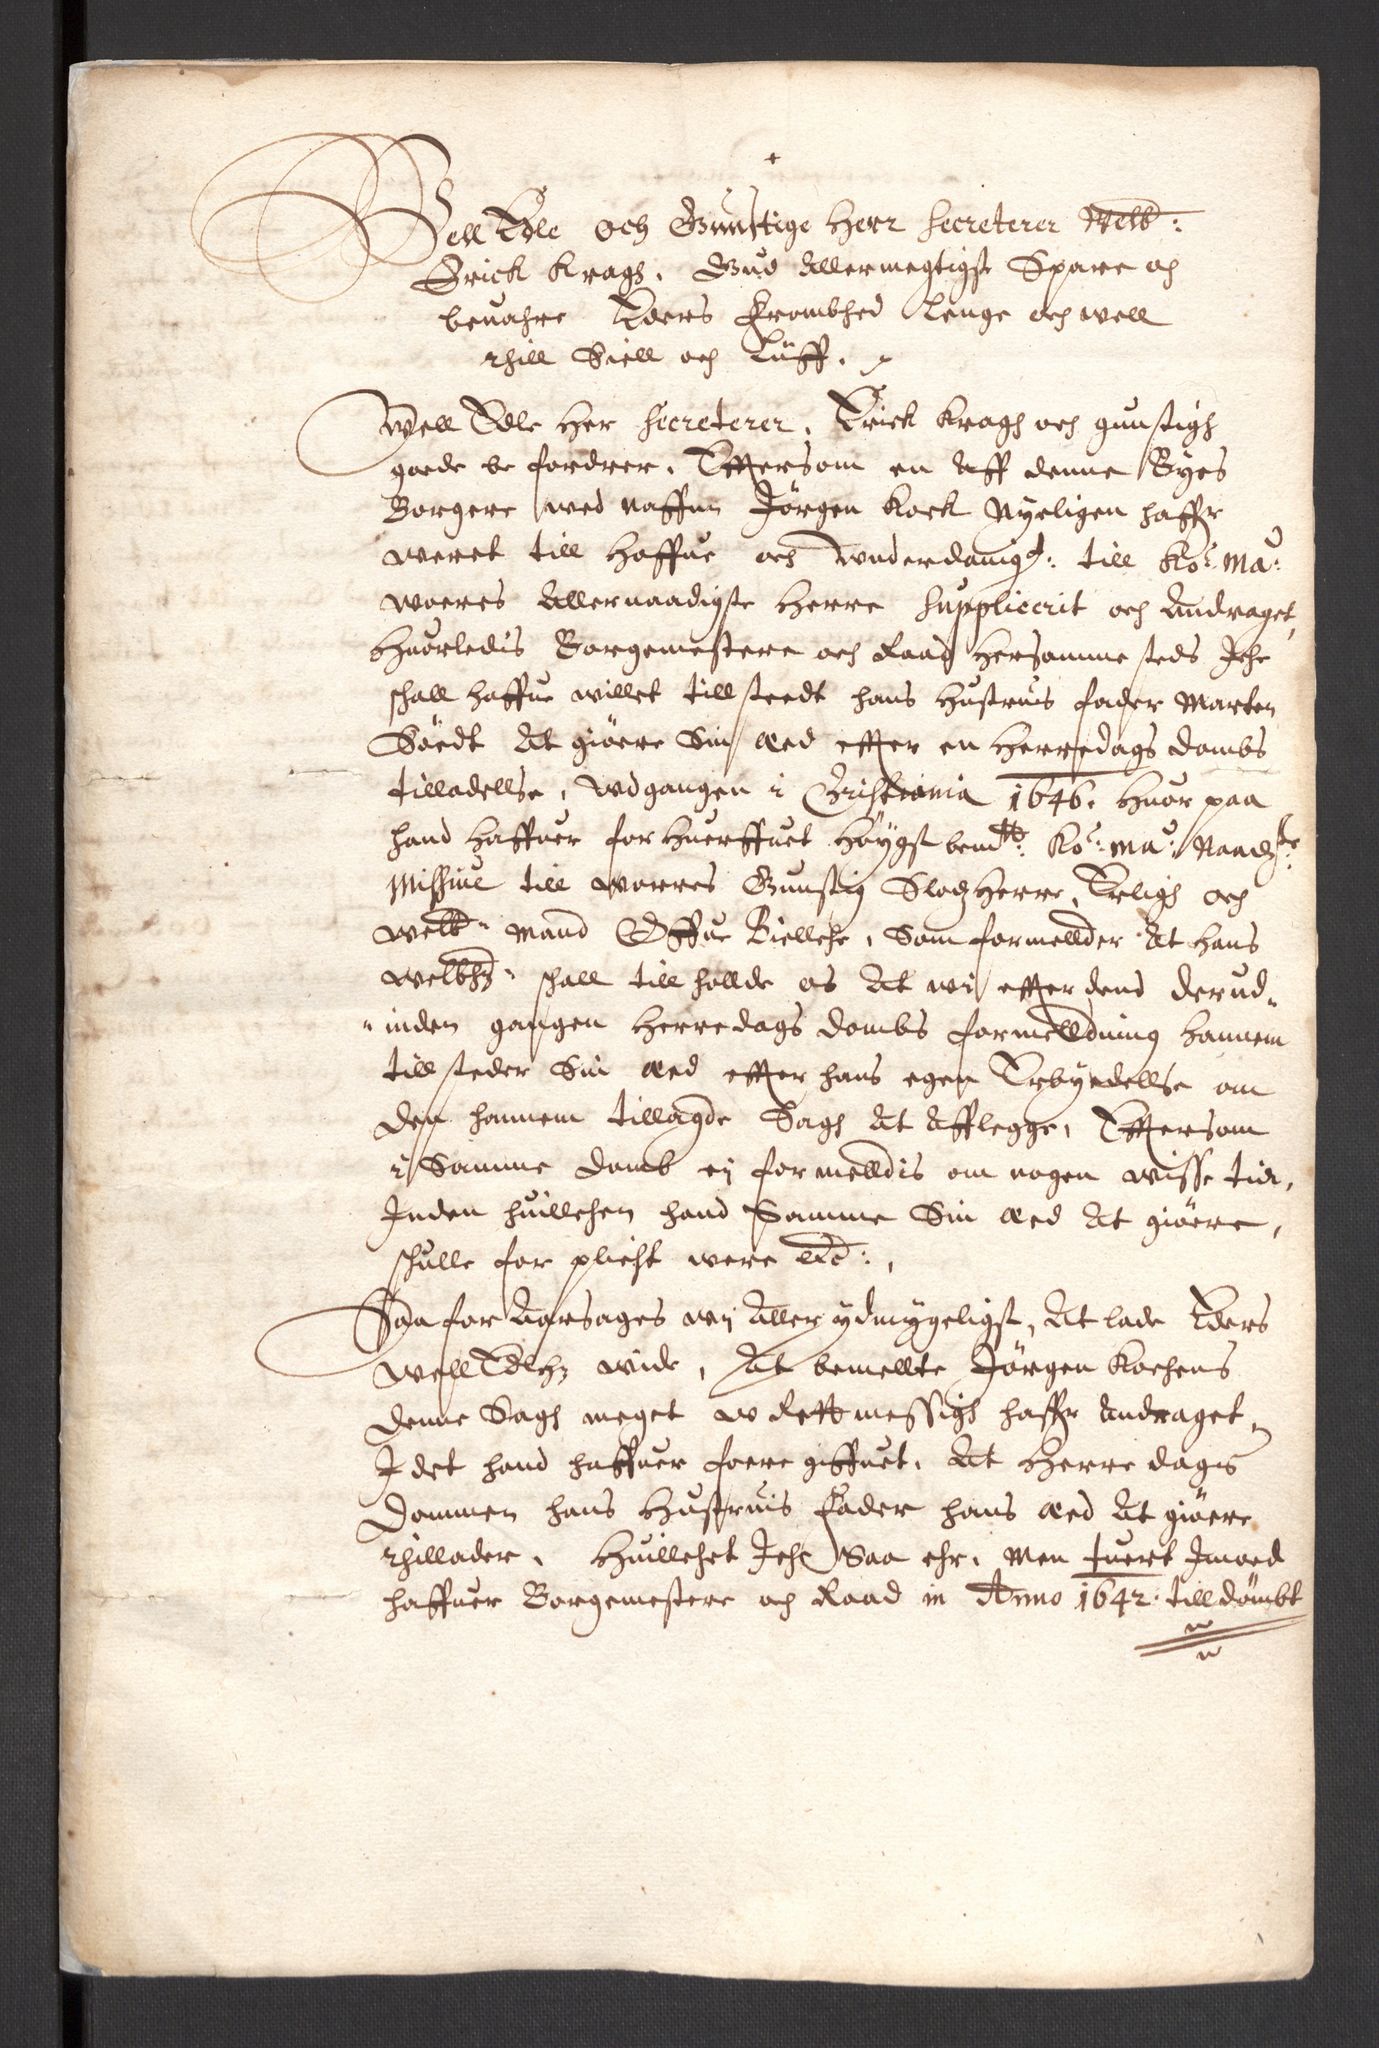 Well Edle och Gunstige Herr Secreterer Welb:
Erick Kragh. Gud Allermegtigst Spare och
beuahre Eders Frombhed Lenge och well
thill Siell och Liiff.
Well Edle Her Secreterer, Erick Kragh och gunstigh
goede befordrer. Efftersom en Aff denne Byes
Borgere wed naffnn Jörgen Kock Nyeligen haffr
weret till Hoffue och Wnderdanigst: till Ko: Ma:
woeres Allernaadigste Herre Supplicerit och Andraget,
Huorledis Borgemestere och Raad Hersamme steds Iche
schall haffue willet tillstedt hans Hustruis fader Marten
Söedt At giöere Sin æed effter en Herredags dombs
tilladellse, Udgangen i Christiania 1646. Huor paa
hand Haffuer forhuerffuet Höygstbemte: Ko: Ma: Naadste:
Missiue till worres Gunstig Slodzherre, Erligh och
Welb: Mand Offue Bielche, Som formellder At Hans
Welbhd: schall tillhollde os At wi effter dend derud-
-inden gangen Herredags dombs formelldning hannem
tillsteder Sin æed effter hans egen Erbyedellse om
den hannem tillagde Sagh At Afflegge, Effersom
i Samme domb ej formelldis om nogen wisse tid,
Inden huillchen hand Samme Sin æed At giöere,
schulle forplicht were etc:,
Saa foraarsages wij Aller ydmygeligst, At lade Eders
WellEdelhd wide, At bemellte Jörgen Kochens
denne Sagh meget wrettmessigh haffr Andraget,
I det hand haffuer foeregiffuet, At Herredags
Dommen hans Hustruis Fader hans æed At giöere
thillader, Huillchet Iche Saa ehr, Men tuert Imoed
haffuer Borgemestere och Raad in Anno 1642. tilldömbt